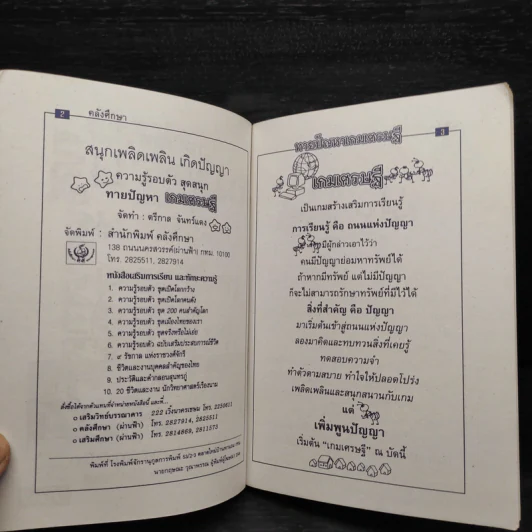 2 คลังศึกษา
สนุกเพลิดเพลิน เกิดปัญญา
ความรู้รอบตัว สุดสนุก
ทายปัญหา เกมเศรษฐี
จัดทำ : ตรีกาล จันทร์แดง
จัดพิมพ์ : สำนักพิมพ์ คลังศึกษา
138 ถนนนครสวรรค์(ผ่านฟ้า) กทม. 10100
โทร. 2825511, 2827914
หนังสือเสริมการเรียน และทักษะความรู้
1. ความรู้รอบตัว ชุดเปิดโลกกว้าง
2. ความรู้รอบตัว ชุดเปิดโลกคนดัง
3. ความรู้รอบตัว ชุด 200 คนสำคัญโลก
4. ความรู้รอบตัว ชุดเมืองไทยของเรา
5. ความรู้รอบตัว ชุดจริงหรือไม่เอ่ย
6. ความรู้รอบตัว ฉบับเสริมประสบการณ์ชีวิต
7. ๙ รัชกาล แห่งราชวงศ์จักรี
8. ชีวิตและงานบุคคลสำคัญของไทย
9. ประวัติและคำกลอนสุนทรภู่
10. 20 ชีวิตและงาน นักวิทยาศาสตร์เรืองนาม
สั่งซื้อได้จากตัวแทนที่จำหน่ายหนังสือนี้ และที่...
เสริมวิทย์บรรณาคาร 222 เวิ้งนาครเขษม โทร.
คลังศึกษา (ผ่านฟ้า) โทร. 2827914, 2825511
เสริมศึกษา (ผ่านฟ้า) โทร.
พิมพ์ที่ โรงพิมพ์จักรานุกูลการพิมพ์
3
ทายปัญหาเกมเศรษฐี
เกมเศรษฐี
เป็นเกมสร้างเสริมการเรียนรู้
การเรียนรู้ คือ ถนนแห่งปัญญา
มีผู้กล่าวเอาไว้ว่า
คนมีปัญญาย่อมหาทรัพย์ได้
ถ้าหากมีทรัพย์ แต่ไม่มีปัญญา
ก็จะไม่สามารถรักษาทรัพย์ที่มีไว้ได้
สิ่งที่สำคัญ คือ ปัญญา
มาเริ่มต้นเข้าสู่ถนนแห่งปัญญา
ลองมาคิดและทบทวนสิ่งที่เคยรู้
ทดสอบความจำ
ทำตัวตามสบาย ทำใจให้ปลอดโปร่ง
เพลิดเพลินและสนุกสนานกับเกม
แต่
เพิ่มพูนปัญญา
เริ่มต้น "เกมเศรษฐี" ณ บัดนี้